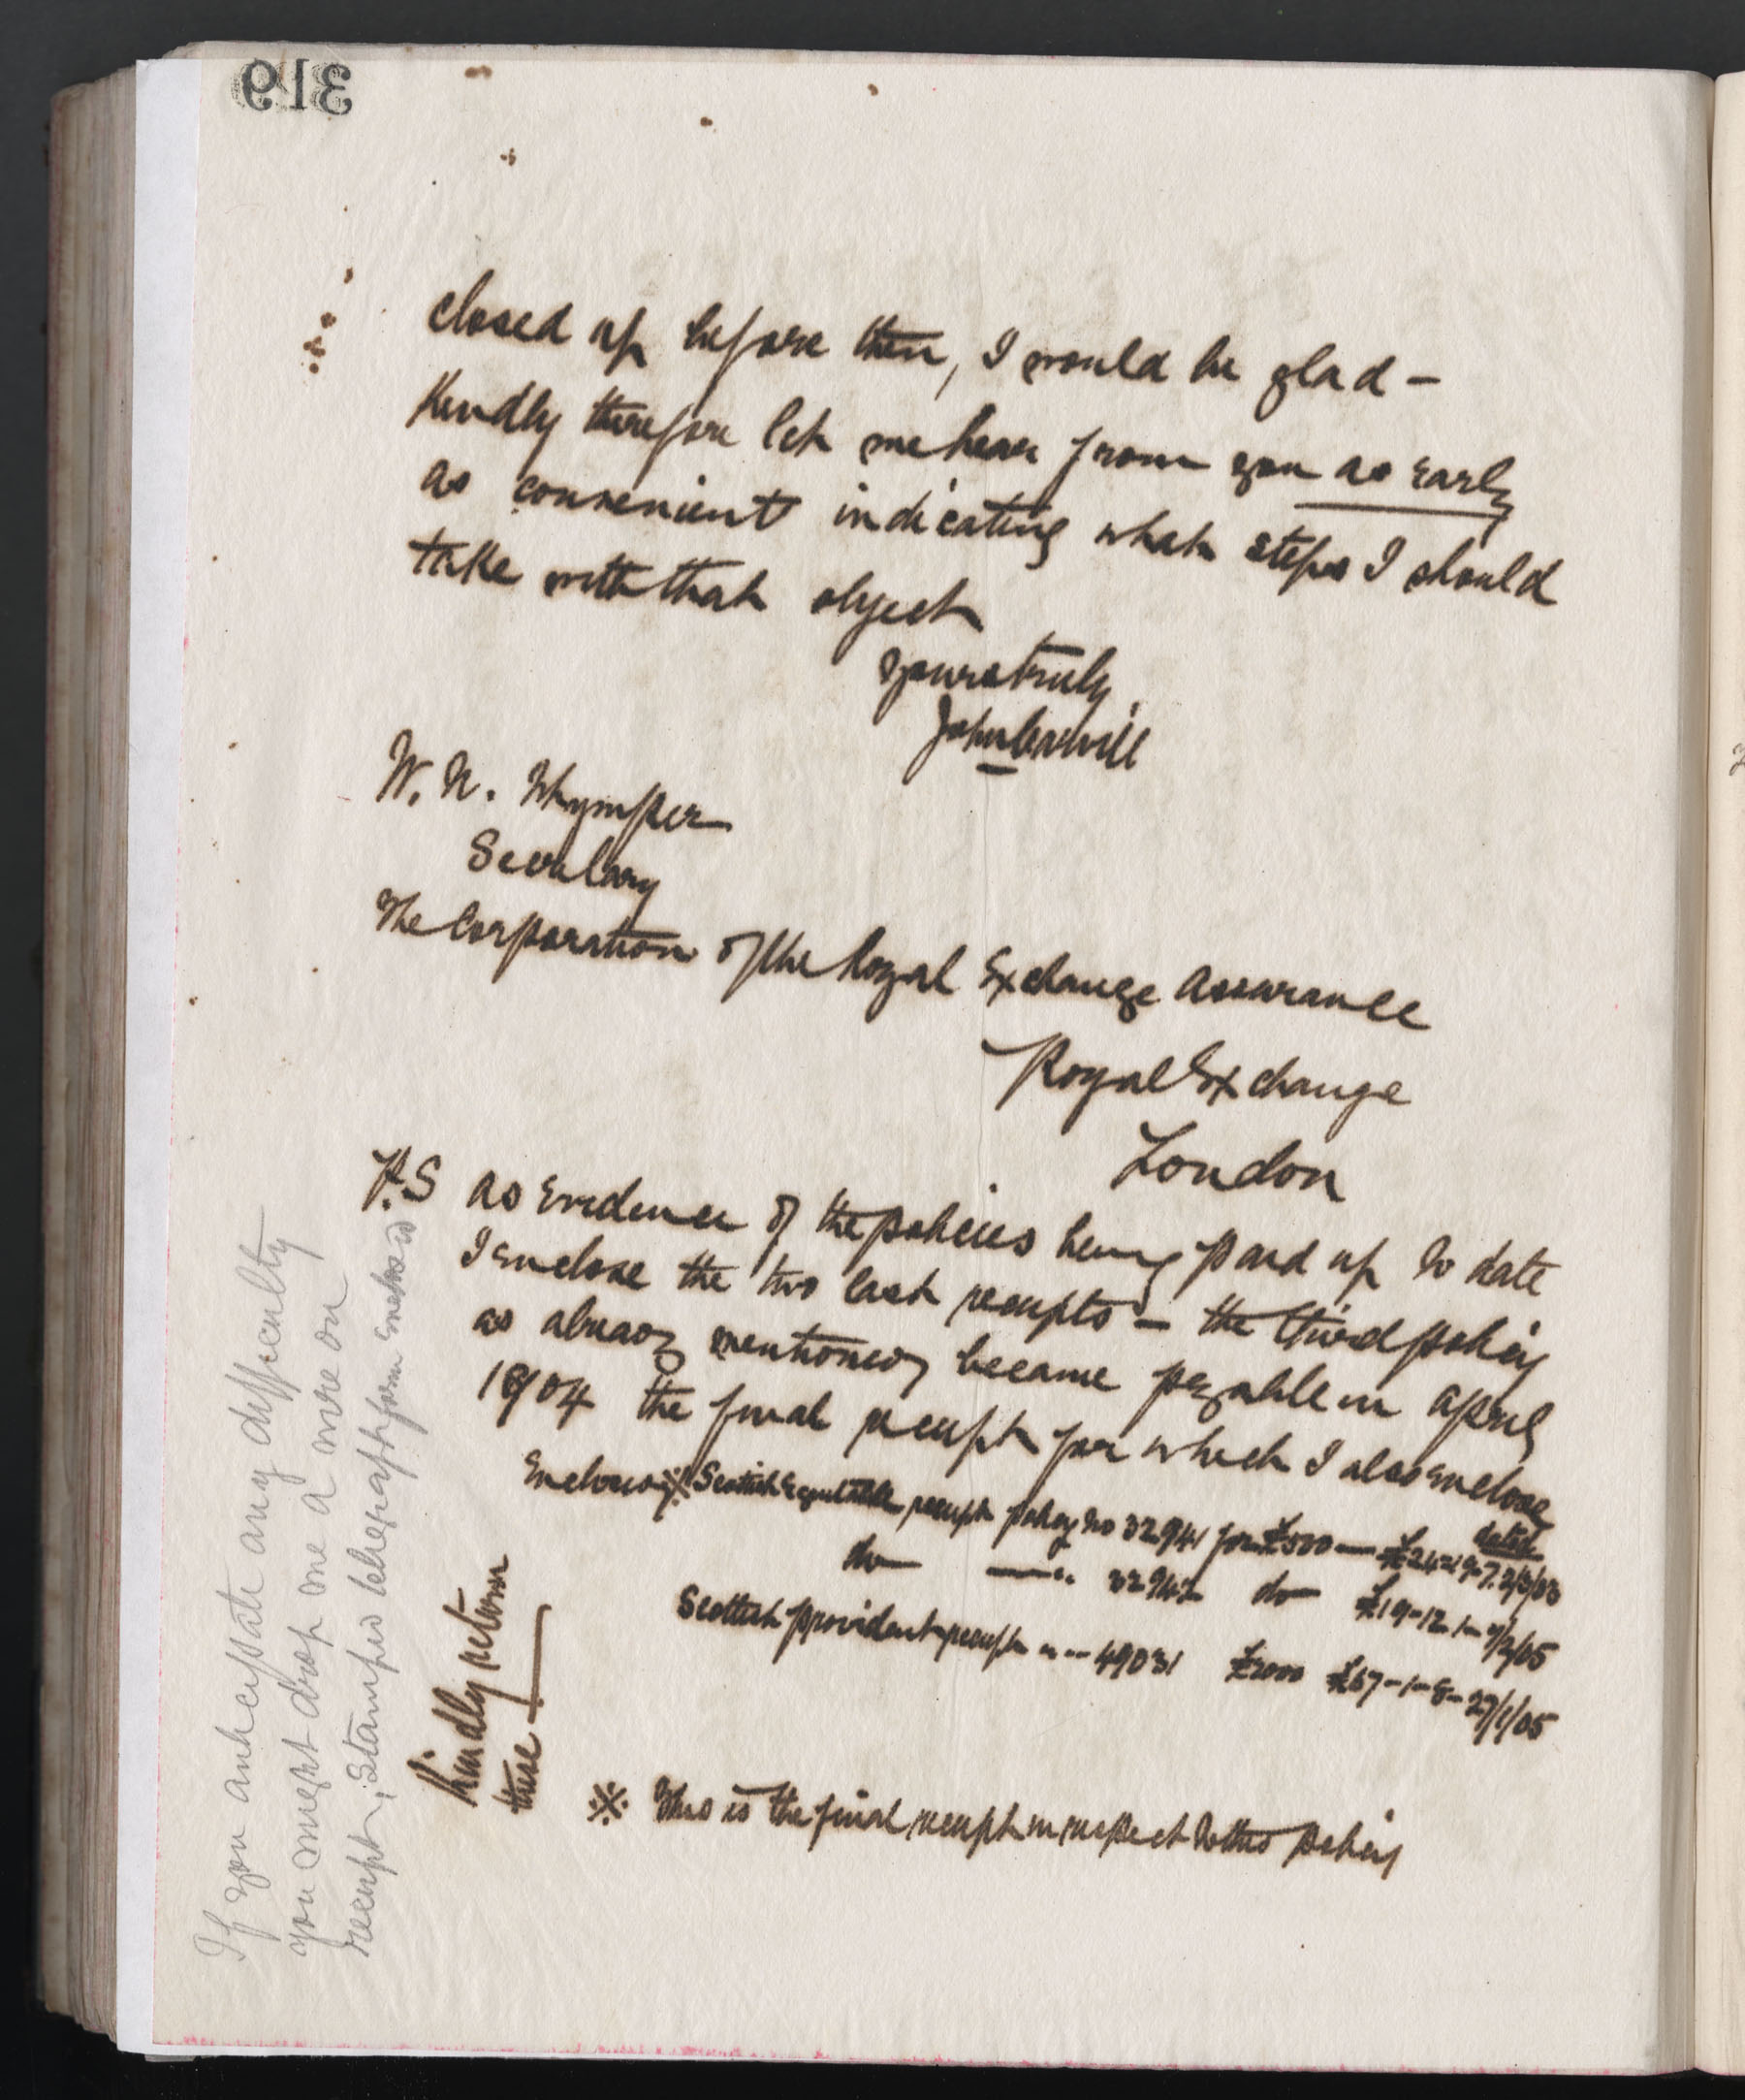 319
closed up before then, I would be glad –
Kindly therefore let me hear from you as early
as convenient indicating what steps I should
take with that object
Yours truly
John
W. N. Whymper
Secretary
The Corporation of the Royal Exchange Assurance
Royal Exchange
London
P.S as evidence of the policies being paid up to date
I enclose the two last receipts – the third policy
as already mentioned, became payable in April
1904 the final receipt for which I also enclose
dated
Enclosed ※ Scottish Equitable receipt policy no 32941 for £500 — £24-19-7. 2/3/03
do — " 32942 do £19-12-1- /05
Scottish Provident receipt " -- 49031 £2000 £67-1-8- 27/1/05
Kindly return
these
※ This is the final receipt in respect to this policy
If you anticipate any difficulty
you might drop me a wire on
receipt, stamped telegraph form enclosed